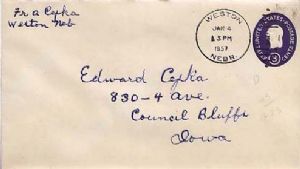 Fr a Cejka
Weston Neb
WESTON
JAN 4
3 PM
1937
NEBR.
UNITED STATES POSTAGE
3
Edward Cejka
830-4 ave.
Council Bluffs
Iowa